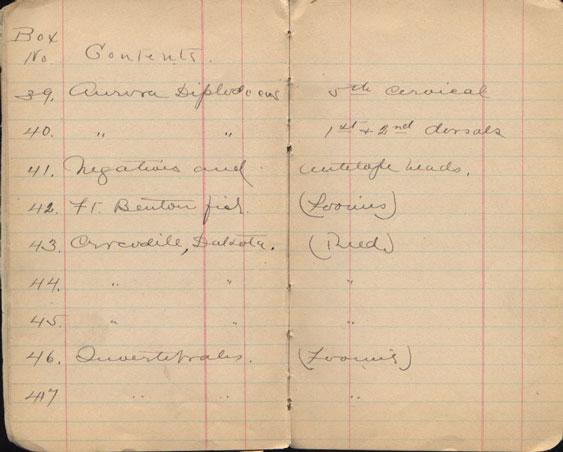 Box
No. Contents.
39. Aurora Diplodocus 5th Cervical
40. " " 1st + 2nd dorsals
41. Negatives and antelope heads.
42. Ft. Benton fish. (Loomis)
43. Crocodile, Dakota. (Reed)
44. " " "
45. " " "
46. Invertebrates. (Loomis)
47 " " "